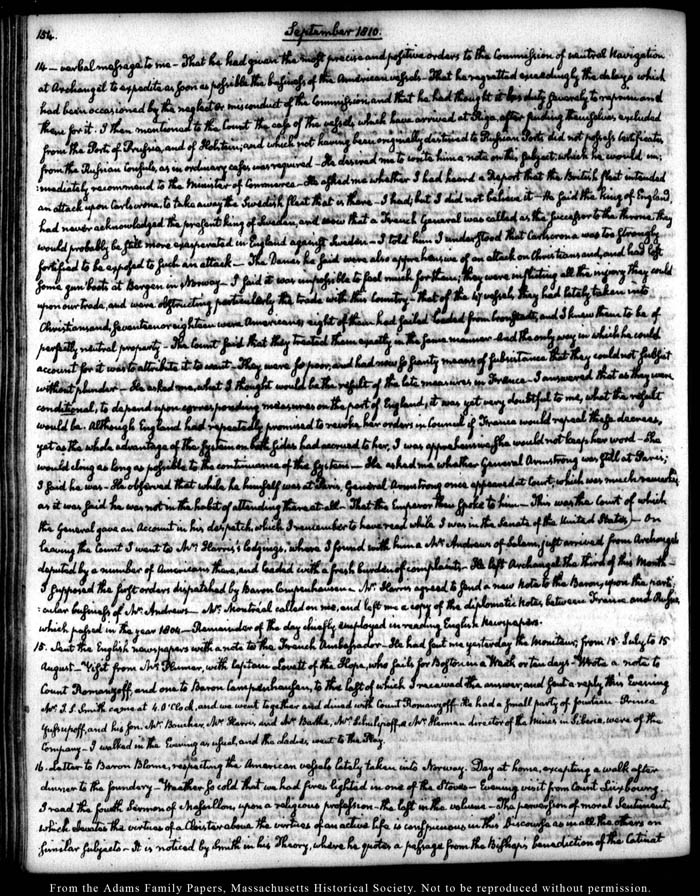 154.
September 1810.
14 — verbal message to me – That he had given the most precise and positive orders to the Commission of neutral Navigation
at Archangel to expedite as soon as possible the business of the American vessels – That he regretted exceedingly the delays which
had been occasioned by the neglect or misconduct of the Commission, and that he had thought it his duty severely to reprimand
them for it. I then mentioned to the Count the case of the vessels, which have arrived at Riga, after finding themselves excluded
from the Ports of Prussia, and of Holstein; and which not having been originally destined to Russian Ports did not possess certificates
from the Russian Consuls, as in ordinary cases was required – He desired me to write him a note on this subject, which he would im;
:mediately recommend to the Minister of Commerce – He asked me whether I had heard a Report that the British fleet intended
an attack upon Carlscrona, to take away the Swedish fleet that is there – I had; but I did not believe it – He said the king of England,
had never acknowledged the present king of Sweden, and now that a French General was called as the successor to the throne, they
would probably be still more exasperated in England against Sweden – I told him I understood that Carlscrona was too strongly
fortified to be exposed to such an attack – The Danes he said were also apprehensive of an attack on Christiansand, and had lost
some gun boats at Bergen in Norway – I said it was impossible to feel much for them; they were inflicting all the injury they could
upon our trade, and were obstructing particularly the trade with this Country – that of the 47 vessels, they had lately taken into
Christiansand, seventeen or eighteen were Americans; eight of them had sailed loaded from Cronstadt, and I knew them to be of
perfectly neutral property – The Count said that they treated them exactly in the same manner – And the only way in which he could
account for it was to attribute it to want – They were so poor, and had now so scanty means of subsistence that they could not subsist
without plunder – He asked me, what I thought would be the result of the late measures, in France – I answered that as they were
conditional, to depend upon corresponding measures on the part of England, it was yet very doubtful to me, what the result
would be. Although England had repeatedly promised to revoke her orders in Council if France would repeal these decrees,
yet as the whole advantage of the System on both sides had accrued to her, I was apprehensive she would not keep her word – She
would cling as long as possible to the continuance of the System – He asked me whether General Armstrong was still at Paris;
I said he was – He observed that while he himself was at Paris, General Armstrong once appeared at Court, which was much remarked,
as it was said he was not in the habit of attending there at all – That the Emperor then spoke to him – This was the Court of which
the General gave an Account in his despatch, which I remember to have read while I was in the Senate of the United States – On
leaving the Count I went to Mr: Harris's lodgings, where I found with him a Mr: Andrews of Salem, just arrived from Archangel
deputed by a number of Americans there, and loaded with a fresh burden of complaints – He left Archangel the third of this Month –
I supposed the first orders dispatched by Baron Campenhausen – Mr: Harris agreed to send a new note to the Baron, upon the parti;
:cular business of Mr: Andrews – Mr: Montréal called on me, and left me a copy of the diplomatic Notes, between France and Russia,
which passed in the year 1804 – Remainder of the day chiefly employed in reading English Newspapers.
15. Sent the English newspapers with a note to the French Ambassador – He had sent me yesterday the Moniteurs, from 15 July to 15
August – Visit from Mr: Plummer, with Captain Lovett of the Hope, who sails for Boston in a Week or ten days – Wrote a note to
Count Romanzoff, and one to Baron Campenhausen, to the last of which I received the answer, and sent a reply this Evening
Mr: J. S. Smith came at 4 O'Clock, and we went together and dined with Count Romanzoff. He had a small party of fourteen – Prince
Yussupoff, and his Son, Mr: Boucher, Mr: Harris and Mr: Bathe, Mr: Schulepoff, a Mr: Herman director of the Mines in Siberia, were of the
Company – I walked in the Evening as usual, and the Ladies, went to the Play.
16. Letter to Baron Blome, respecting the American vessels lately taken into Norway. Day at home, excepting a walk after
dinner to the foundery – Weather so cold that we had fires lighted in one of the Stoves – Evening visit from Count Luxbourg.
I read the fourth Sermon of Massillon, upon a religious profession – the last in the volume – The perversion of moral Sentiment,
which elevates the virtues of a Cloister above the virtues of an active life is conspicuous in this Discourse as in all the others on
similar subjects – It is noticed by Smith in his Theory, where he quotes a passage from the Bishop's benediction of the Catinat
From the Adams Family Papers, Massachusetts Historical Society. Not to be reproduced without permission.